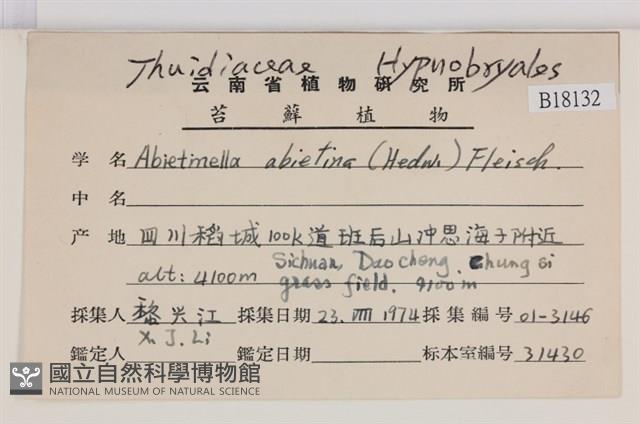 Thuidiaceae Hypnobryales
云南省植物研究所
B18132
苔蘚植物
学名 Abietinella abietina (Hedw.) Fleisch.
中名
产地 四川稻城100k道班后山冲思海子附近
Sichuan, Daocheng, Chung si
alt: 4100m grass field. 4100m
採集人 黎兴江 採集日期 23. VIII 1974 採集編号 01-3146
X. J. Li
鑑定人 鑑定日期 标本室編号 31430
國立自然科學博物館
NATIONAL MUSEUM OF NATURAL SCIENCE